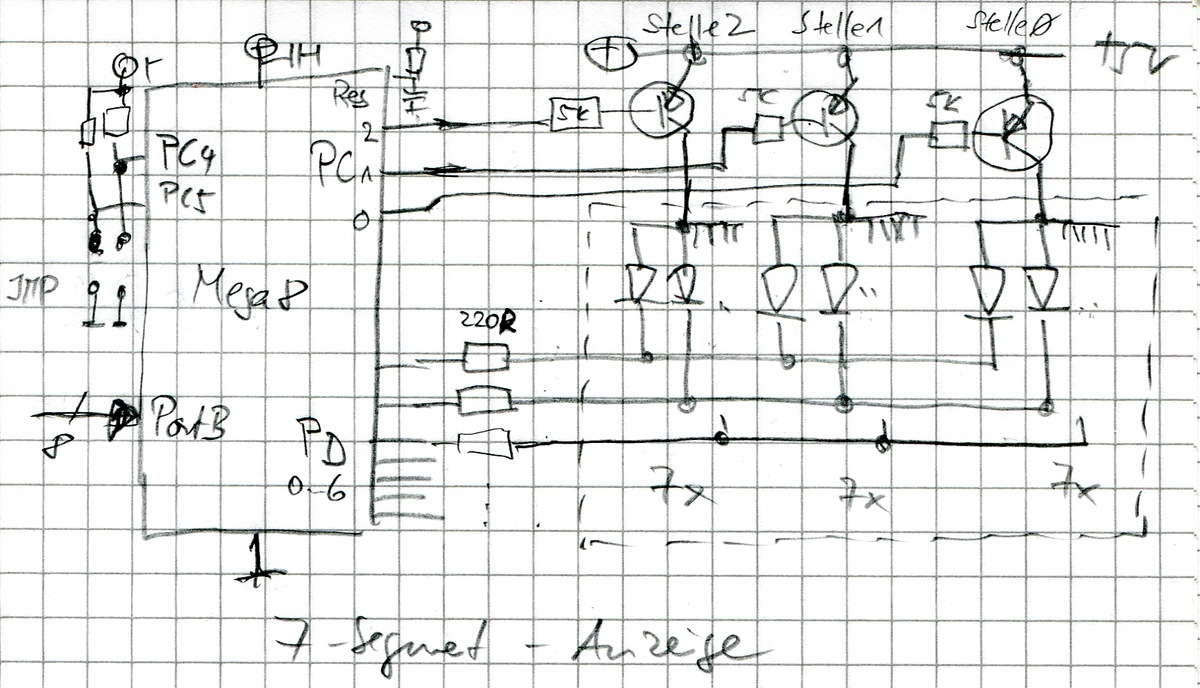 Stelle2 Stelle1 Stelle0
+5V
Res
5K 5K 5K
2
PC4
PC1
PC5
0
JMP
Mega8
220R
PortB
8
PD
0-6
7x 7x 7x
7-Segmet-Anzeige